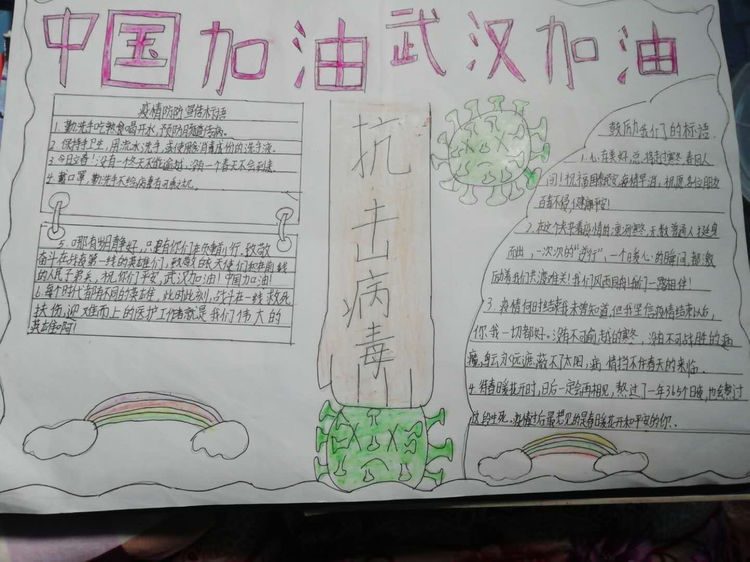 中国加油武汉加油
疫情防护宣传标语
1. 勤洗手吃熟食喝开水,预防肠道传病。
2. 保持手卫生,用流水洗手,或使用含消毒成份的洗手液。
3. 今日交春!没有一个冬天不能逾越,没有一个春天不会到来
4. 戴口罩,勤洗手不给病毒
5. 哪有岁月静好,只是有你们在负重前行,致敬
奋斗在抗毒第一线的英雄们,致敬白衣天使们和在前线
的人民子弟兵,祝你们平安,武汉加油!中国加油!
6. 每个时代都有不同的英雄,此时此刻,战斗在一线救死
扶伤,迎难而上的医护工作者就是我们伟大的
英雄啊!
抗击病毒
鼓励去们的标语
1. 心在美好,总
问!祝福用疫情早消,祝愿各位朋友
百毒不侵,健康平安!
2. 在这个大事疫情的寒冬,无数普通人挺身
而出,一次次的“逆行”,一个个暖心的瞬间,都激
励着我们共渡难关!我们风雨同舟,我们一路相伴!
3. 疫情何时结束我未曾知道,但我坚信疫情结束以后,
你我一切都好。没有不可逾越的寒冬,没有不可战胜的病
魔,乌云永远遮蔽不了太阳,病情挡不住春天的来临。
4. 待春暖花开时,日后一定会再相见,熬过了一年365个日夜,也会熬过
这段生死。疫情过后最想见的是春暖花开和平安的你、